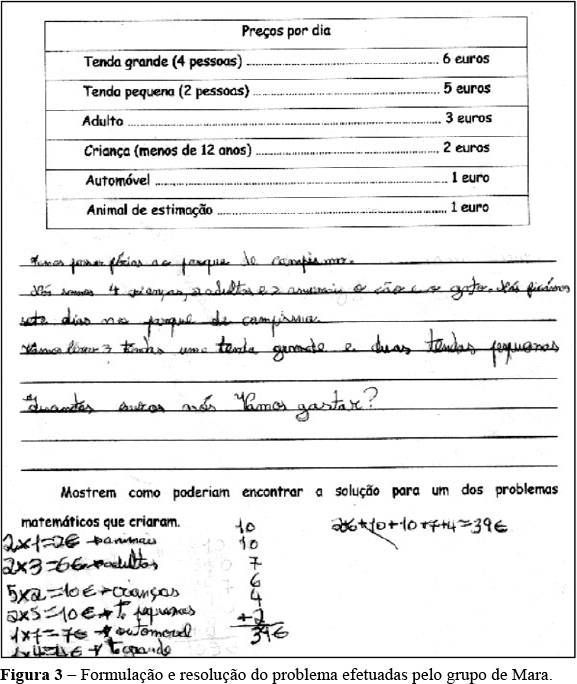 Preços por dia
Tenda grande (4 pessoas) 6 euros
Tenda pequena (2 pessoas) 5 euros
Adulto 3 euros
Criança (menos de 12 anos) 2 euros
Automóvel 1 euro
Animal de estimação 1 euro
passar férias ao parque de campismo.
Nós somos 4 crianças, 2 adultos e 2 animais o cão e o gato. Nós ficámos
sete dias no parque de campismo
Vamos levar 3 tendas uma tenda grande e duas tendas pequenas
Quantos euros nós Vamos gastar?
Mostrem como poderiam encontrar a solução para um dos problemas
matemáticos que criaram.
2x1=2€ animais
2x3=6€ adultos
5x2=10€ crianças
2x5=10€ pequenas
1x7=7€ automovel
1x4=4€ grande
10
10
7
6
4
+2
39€
+10+10+7+4=39€
Figura 3 – Formulação e resolução do problema efetuadas pelo grupo de Mara.